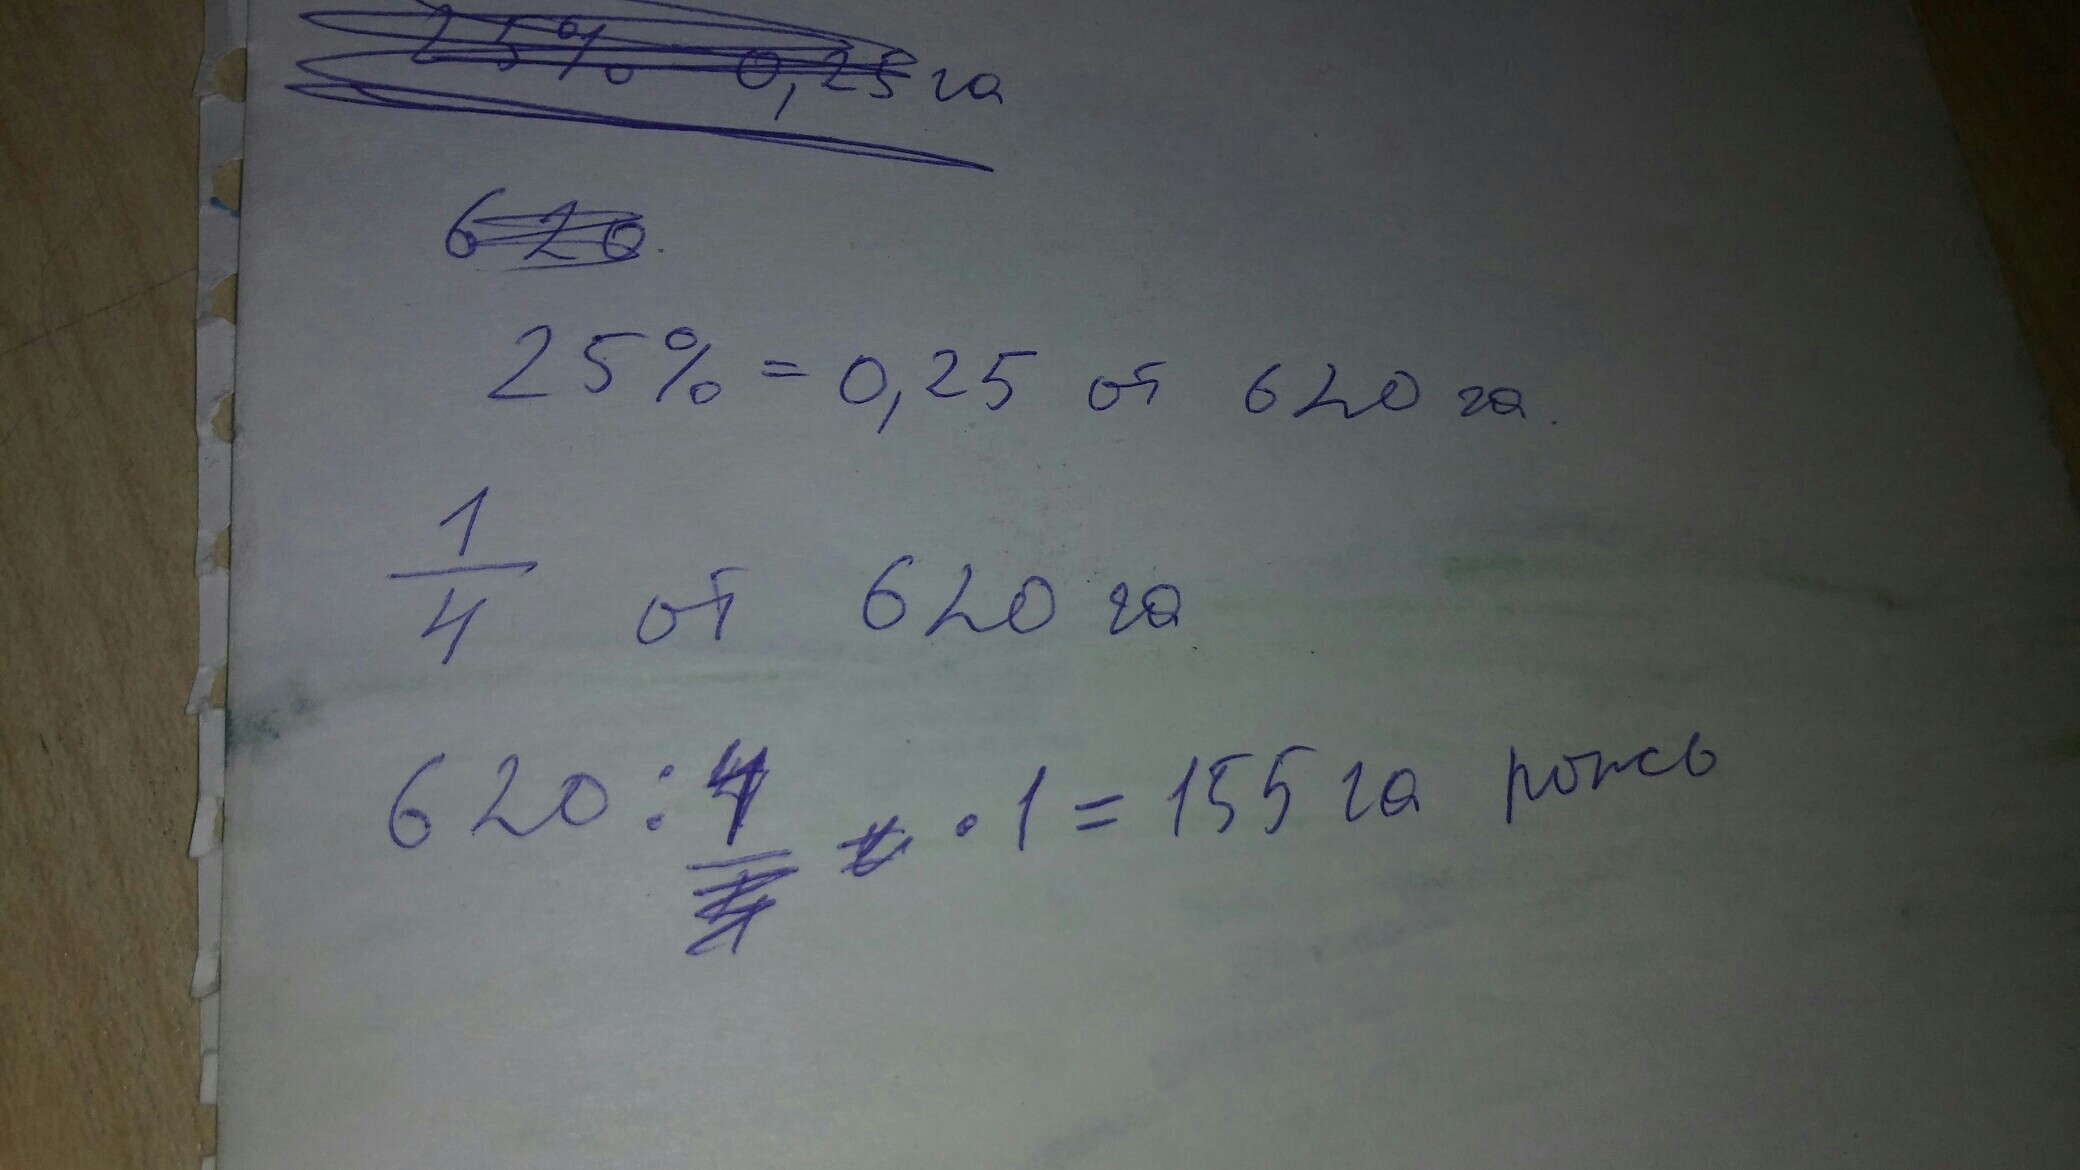 25% 0,25 га
620
25% = 0,25 от 620 га.
1/4 от 620 га
620 : 4 · 1 = 155 га рожь